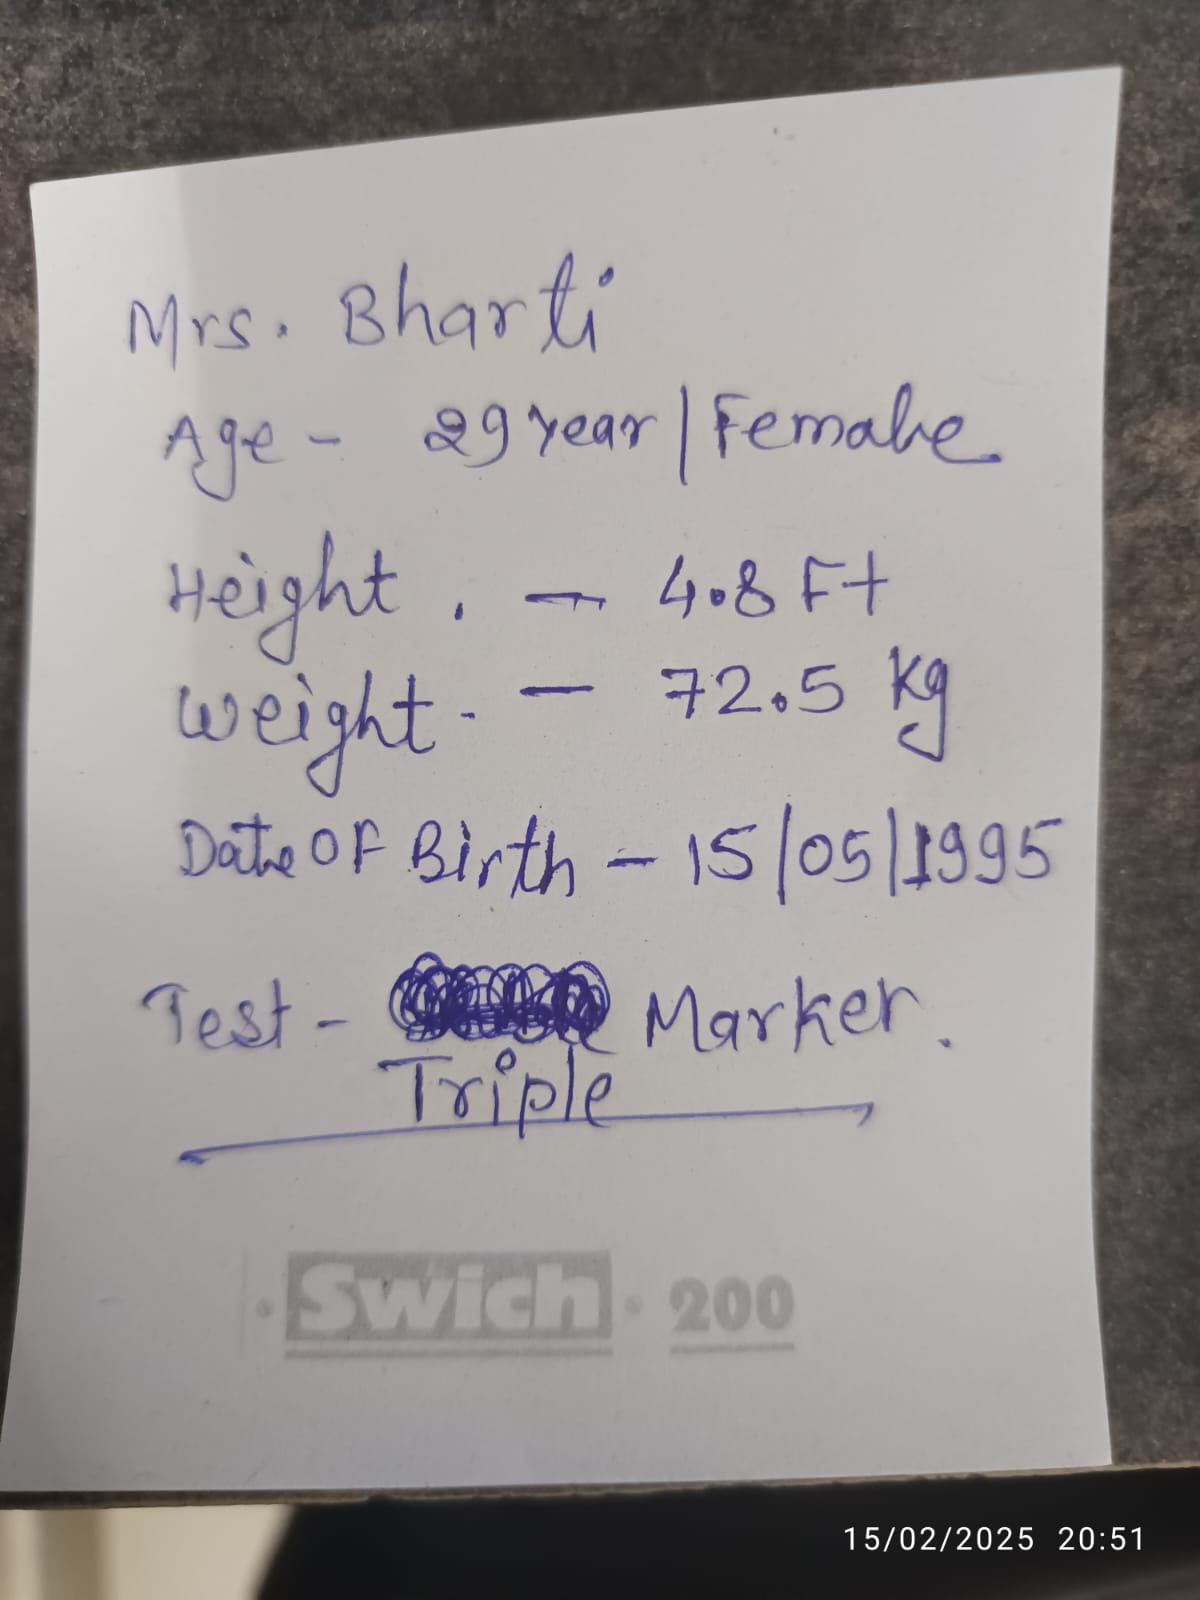 Mrs. Bharti
Age - 29 year | Female
Height. - 4.8 Ft
Weight. - 72.5 kg
Date OF Birth - 15/05/1995
Test - Marker.
Triple
Swich 200
15/02/2025 20:51